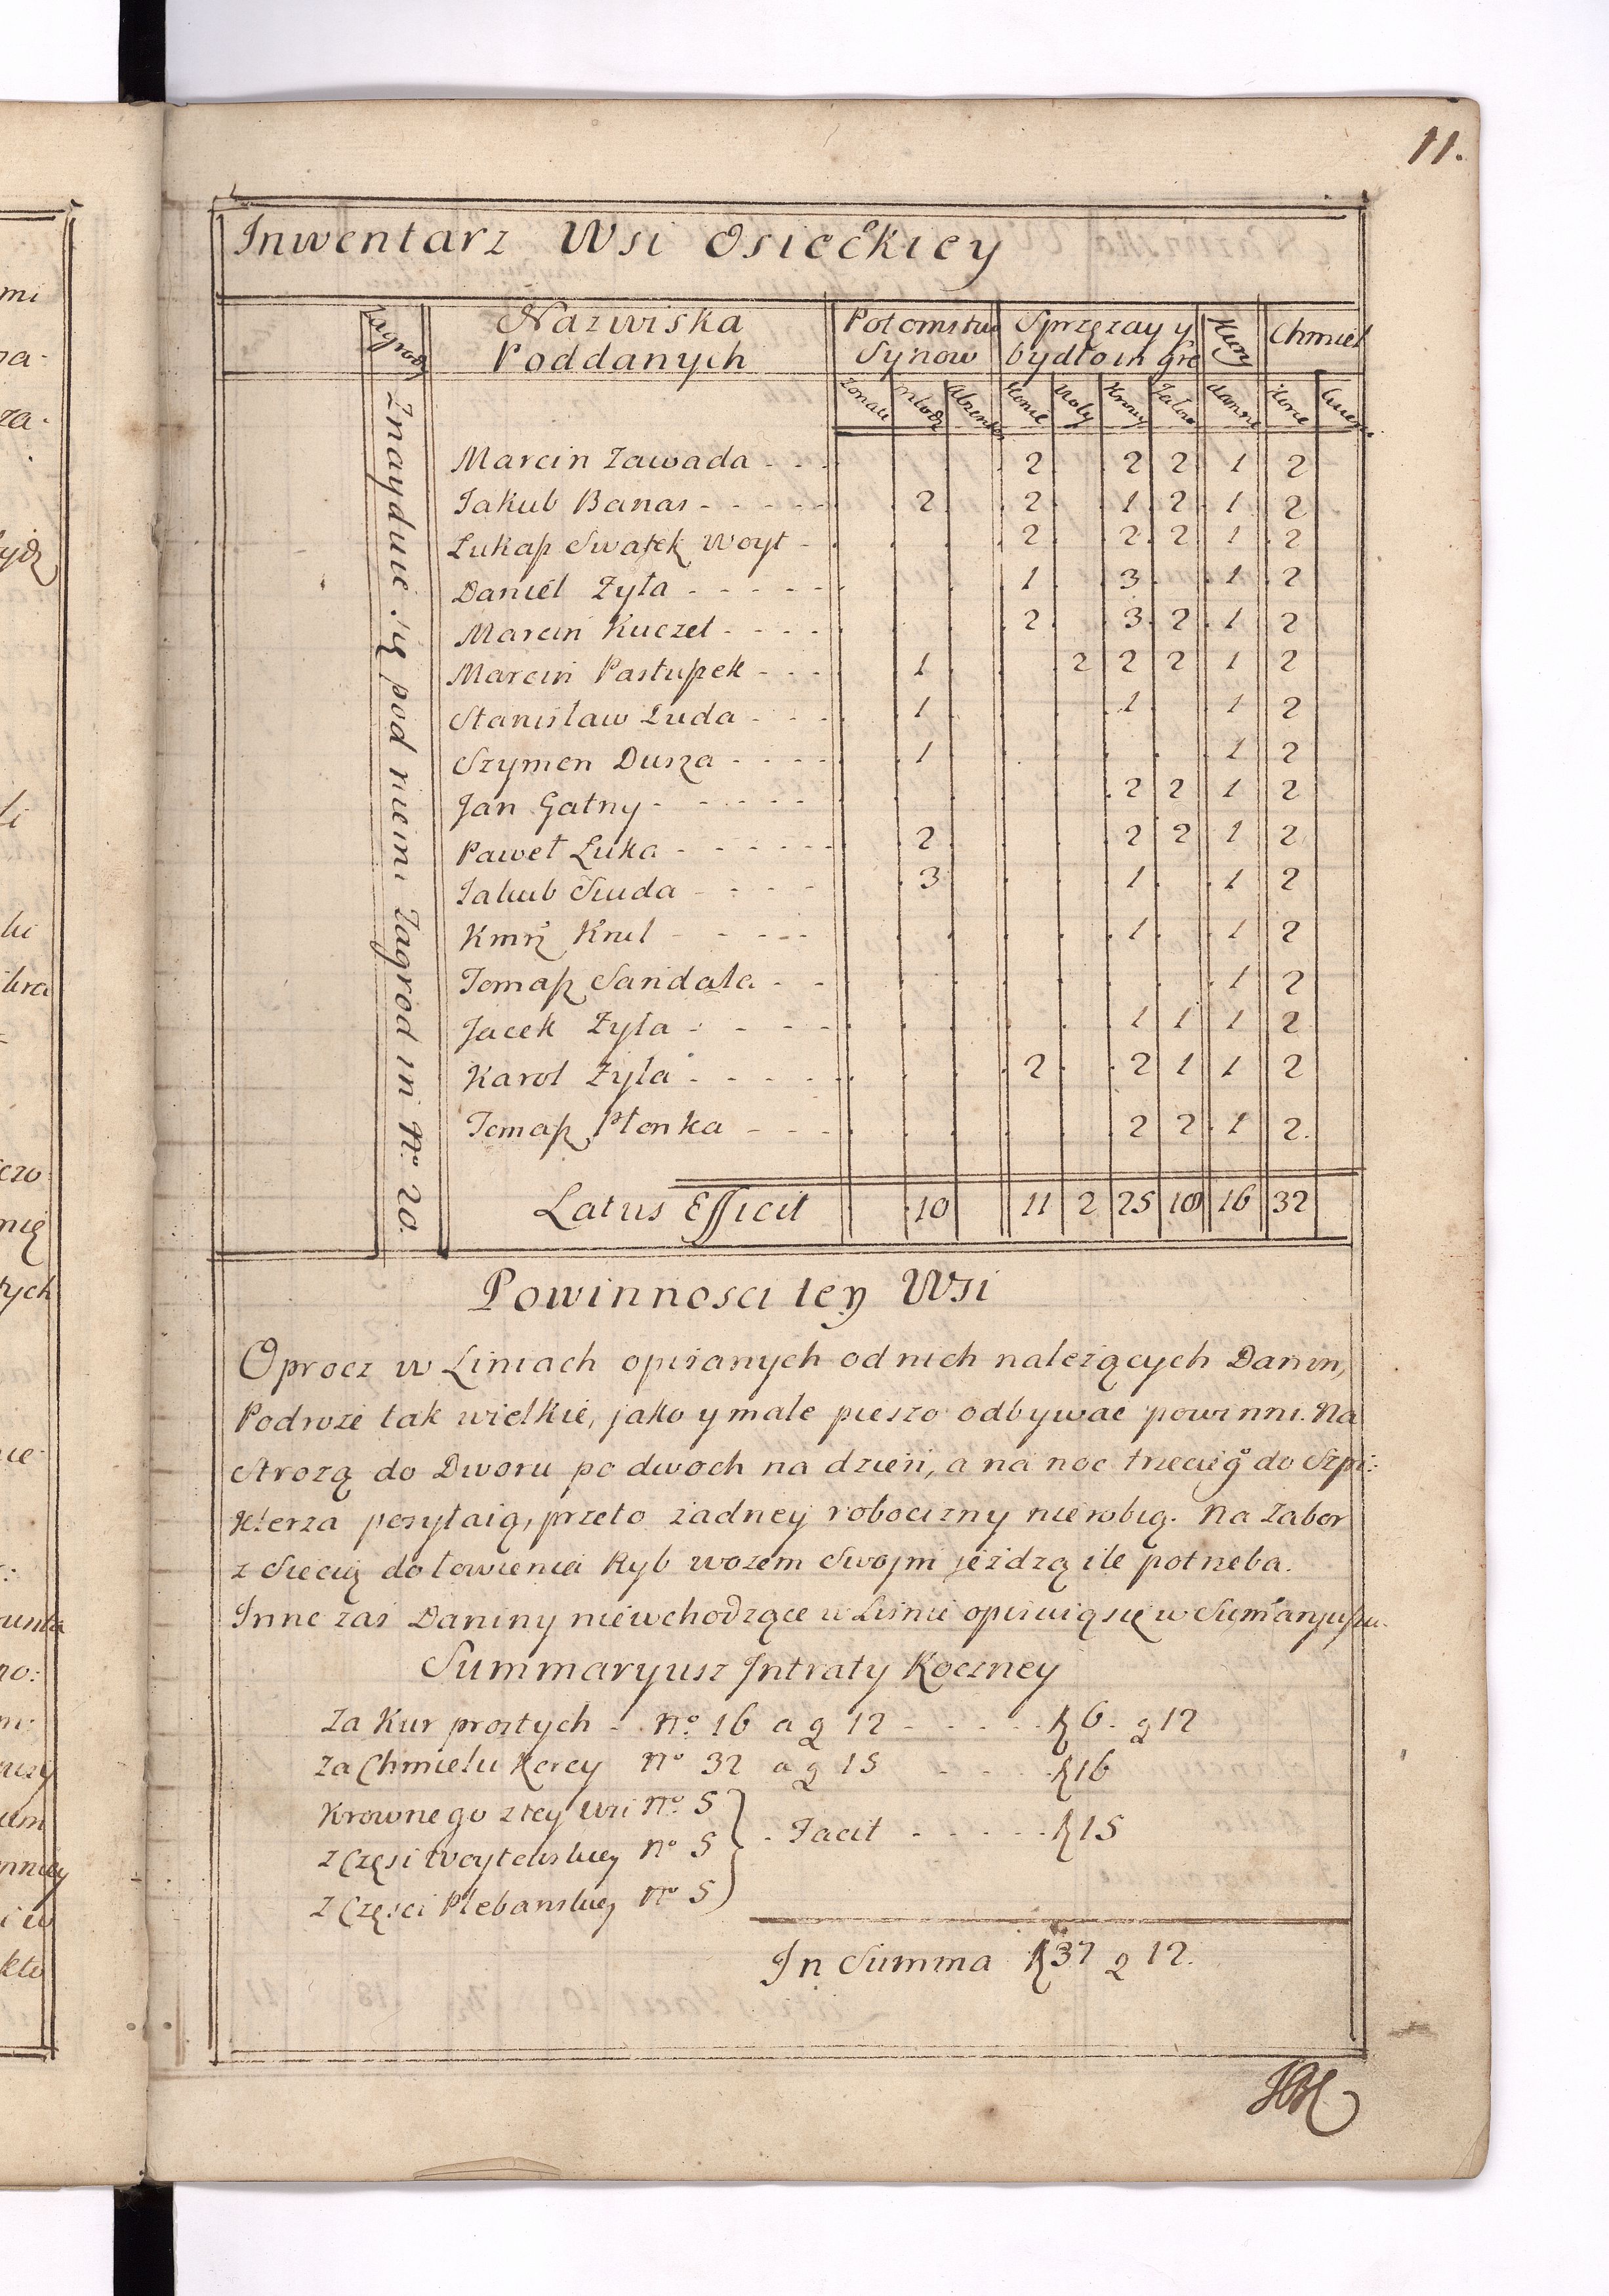 11.
Inwentarz Wsi Osieckiey
Zagrody Nazwiska Poddanych Potomstwo Synow Sprzęzay y bydło in gre Kury Chmiel
Konie Woły Krowy
Znayduie się pod niemi Zagrod in No 20.
Marcin Zawada - - - 2 2 2 1 2
Jakub Banas - - - - - 2 2 1 2 1 2
Łukaß Swatek Woyt - 2 2 2 1 2
Daniel Zyła - - - - - 1 3 1 2
Marcin Kuczel - - - - 2 3 2 1 2
Marcin Pastußek - - - 1 2 2 2 1 2
Stanisław Luda - - - 1 1 1 2
Szymon Dusza - - - - 1 1 2
Jan Gatny - - - - - - 2 2 1 2
Paweł Łuka - - - - - - 2 2 2 1 2
Jakub Siuda - - - - 3 1 1 2
Knul - - - - 1 1 2
Tomaß Sandała - - 1 2
Jacek Zyła - - - - 1 1 1 2
Karol Zyła - - - - - 2 2 1 1 2
Tomaß Płonka - - - 2 2 1 2.
Latus Efficit 10 11 2 25 18 16 32
Powinnosci tey Wsi
Oprocz w Liniach opisanych od nich nalezących Danin,
Podroze tak wielkie, jako y małe pieszo odbywac powinni. Na
Strozą do Dworu po dwoch na dzień, a na noc trzeciego do Szpi:
klerza posyłaią, przeto zadney robocizny nierobią. Na Zabor
z Siecią do łowienia Ryb wozem Swoim jezdzą ile potrzeba.
Inne zas Daniny niewchodzące w Linie opisuią się w Sumaryuszu.
Summaryusz Intraty Roczney
Za Kur prostych - No 16 a g 12 - - - - - f 6. g 12
Za Chmielu Korcy No 32 a g 15 - - - - f 16
Krownego z tey Wsi No 5
z Częsci Woytowskiey No 5 - Facit - - - - - - f 15
z Częsci Plebanskiey No 5
In Summa f 37 g 12.